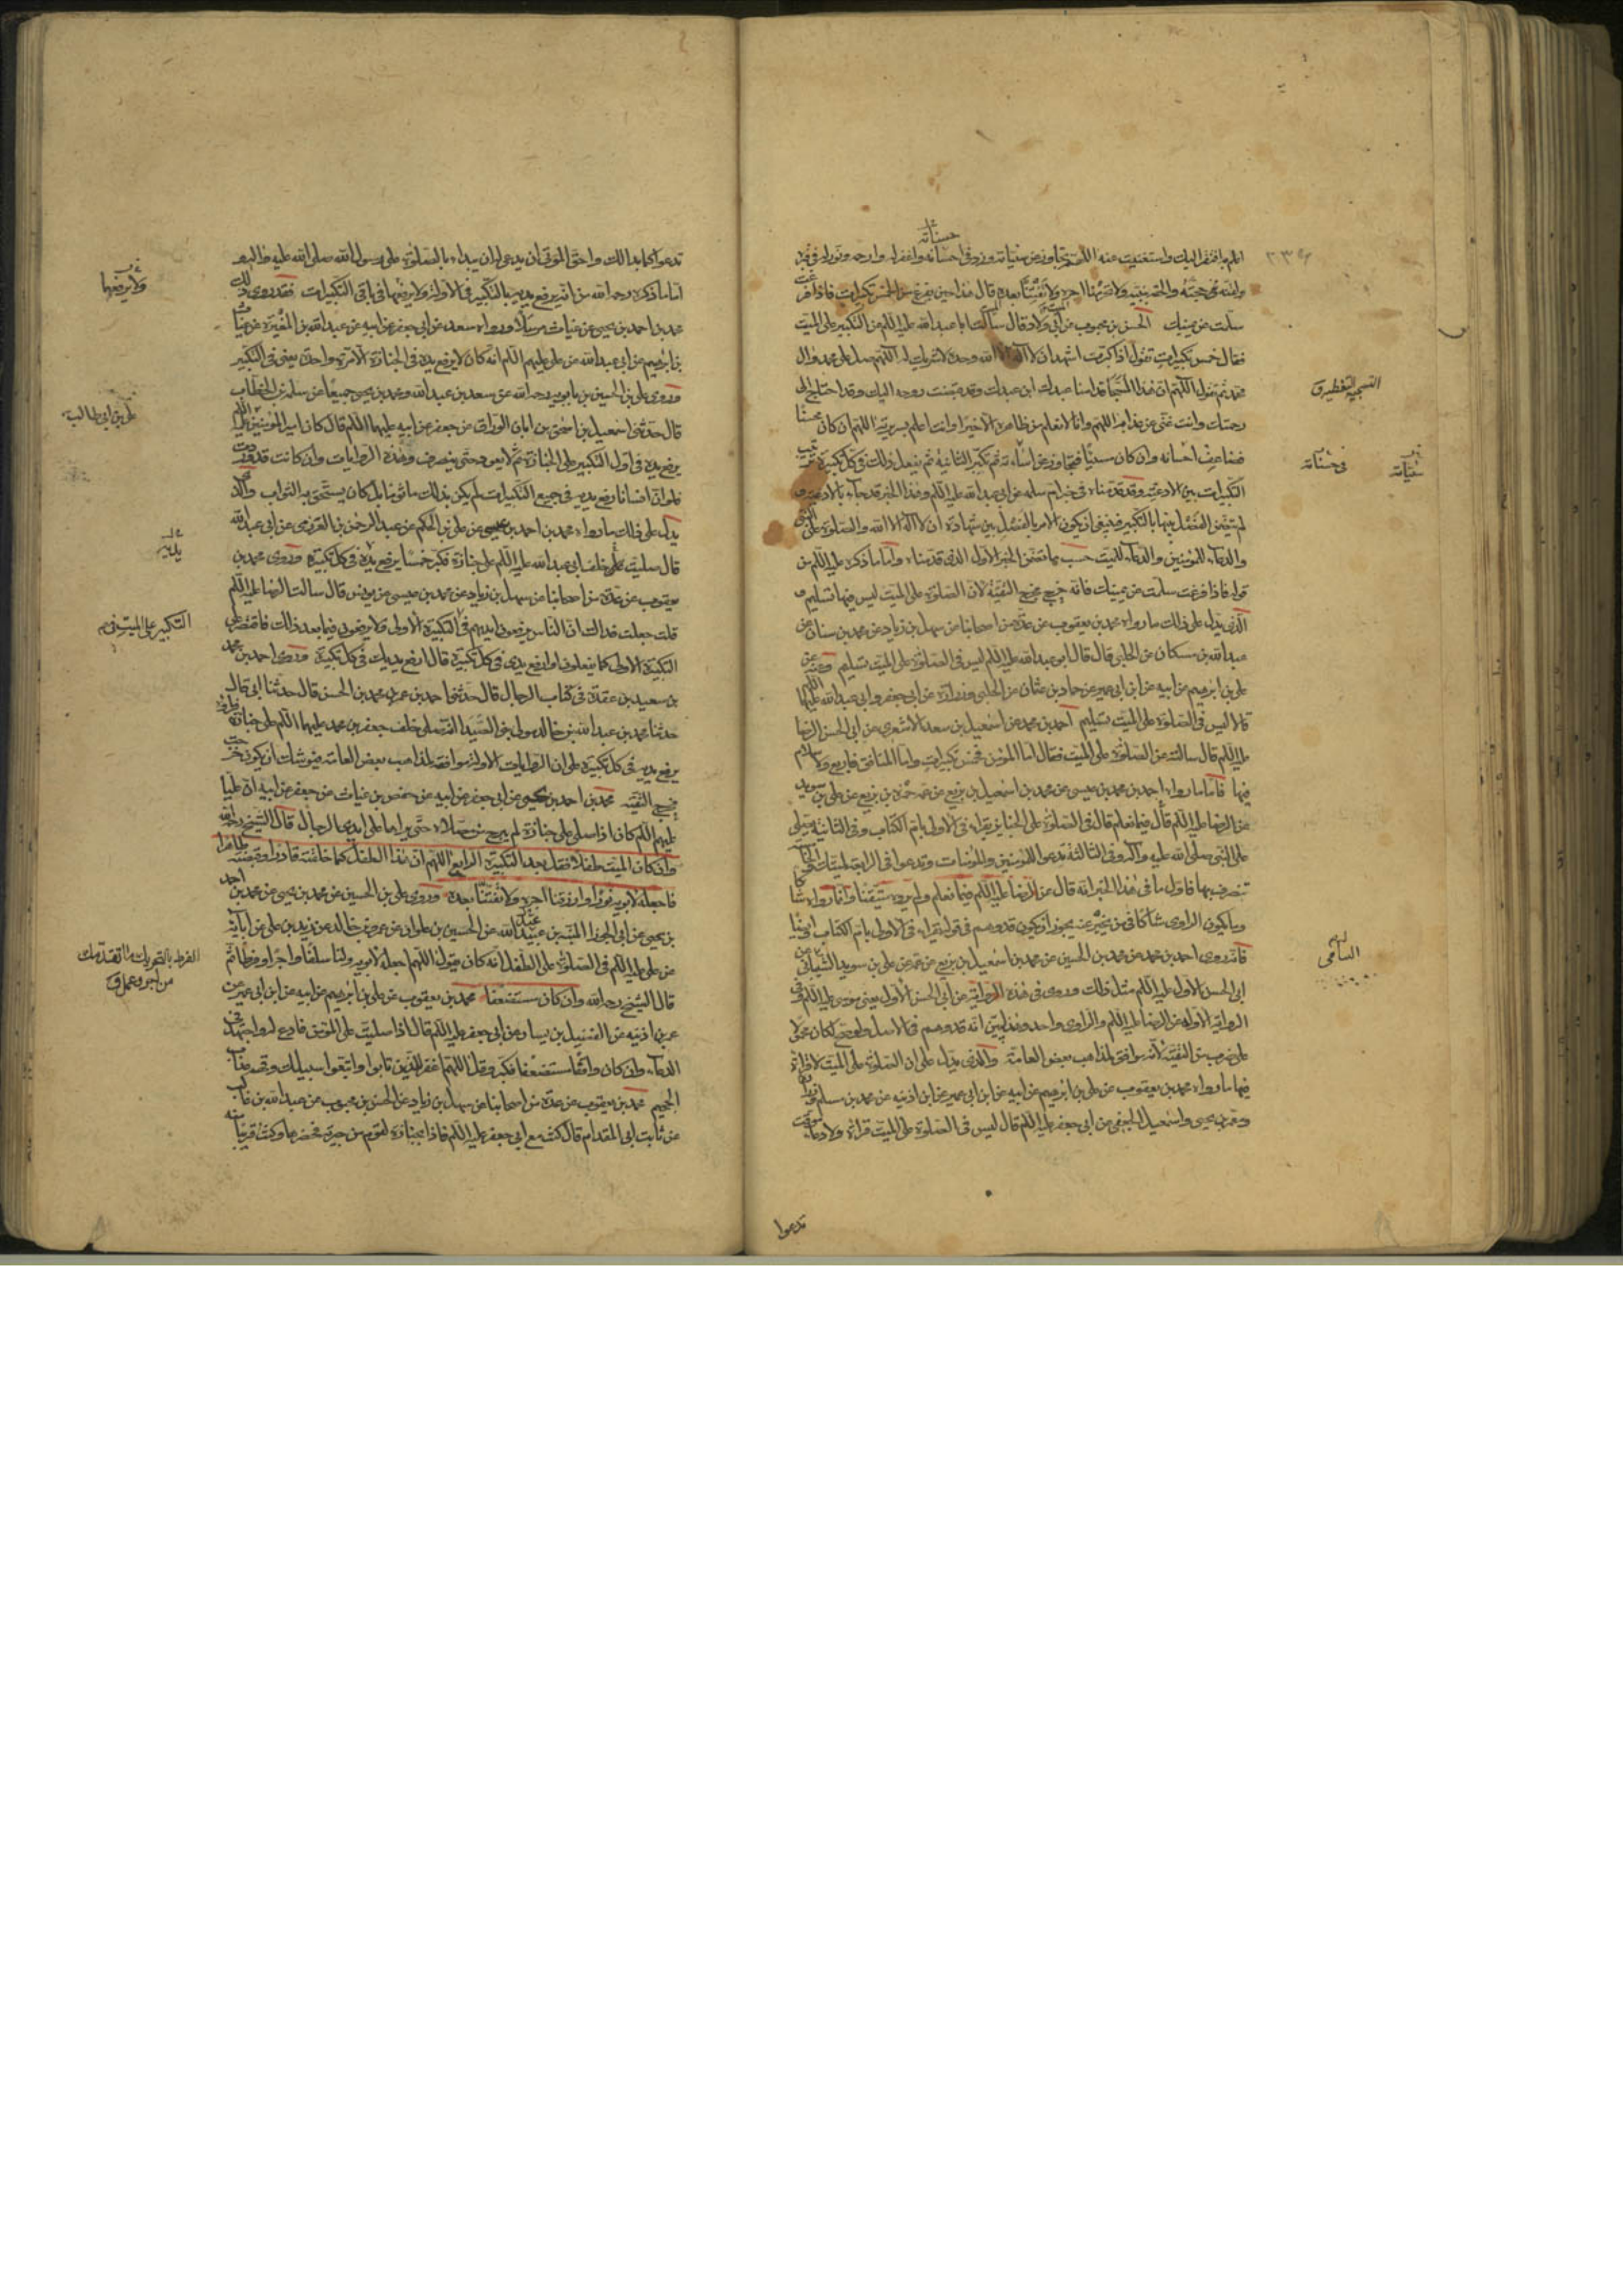 حسناته
اللهم افتقر اليك واستغنيت عنه اللهم تجاوز عن سيئاته وزد في احسانه واغفر له وارحمه ونور له في قبره
ولقنه حجته والحقه بنبيه ولا تحرمنا اجره ولا تفتنا بعده قال هذا حين يفرغ من الخمس تكبيرات فاذا فرغت
سلمت عن يمينك الحسن بن محبوب عن ابي ولاد قال سألت ابا عبد الله عليه اللم عن التكبير على الميت
فقال خمس تكبيرات تقول اذا كبرت اشهد ان لا اله الا الله وحده لا شريك له اللهم صل على محمد وال
محمد ثم تقول اللهم ان هذا المسجى قدامنا عبدك ابن عبدك وقد قبضت روحه اليك وقد احتاج الى
رحمتك وانت غني عن عذابه اللهم وانا لا نعلم من ظاهره الا خيرا وانت اعلم بسريرته اللهم ان كان محسنا
فضاعف احسانه وان كان مسيئا فتجاوز عن اساءته ثم تكبر الثانية ثم تفعل ذلك في كل تكبيرة
التكبيرات بين الادعية وقد قدمناه في خبر ام سلمه عن ابي عبد الله عليه اللم وهذا الخبر قد جاء بالادعية و
لم يتضمن الفصل بينها بالتكبير فينبغي ان يكون الامر بالفصل بين شهادة ان لا اله الا الله والصلوة على النبي
والدعاء للمؤمنين والدعاء للميت حسب ما تضمن الخبر الاول الذي قدمناه واما ما ذكره عليه اللم من
قوله فاذا فرغت سلمت عن يمينك فانه خرج مخرج التقية لان الصلوة على الميت ليس فيها تسليم و
الذي يدل على ذلك ما رواه محمد بن يعقوب عن عدة من اصحابنا عن سهل بن زياد عن محمد بن سنان عن
عبد الله بن مسكان عن الحلبي قال قال ابو عبد الله عليه اللم ليس في الصلوة على الميت تسليم وعنه عن
علي بن ابرهيم عن ابيه عن ابن ابي عمير عن حماد بن عثمان عن الحلبي وزرارة عن ابي جعفر وابي عبد الله عليهما اللم
قالا ليس في الصلوة على الميت تسليم احمد بن محمد عن اسمعيل بن سعد الاشعري عن ابي الحسن الرضا
عليه اللم قال سالته عن الصلوة على الميت فقال اما المؤمن فخمس تكبيرات واما المنافق فاربع ولا سلام
فيها فاما ما رواه احمد بن محمد بن عيسى عن محمد بن اسمعيل بن بزيع عن عمه حمزة بن بزيع عن علي بن سويد
عن الرضا عليه اللم قال فيما نعلم قال في الصلوة على الجنايز تقراء في الاولى بام الكتاب وفي الثانية تصلي
على النبي صلى الله عليه وآله وفي الثالثة تدعوا للمؤمنين والمؤمنات وتدعوا في الرابعة لميتك والخامسة
تنصرف بها فاول ما في هذا الخبر انه قال عن الرضا عليه اللم فيما نعلم ولم يروه متيقنا واذا رواه شاكا
ويكون الراوي شاكا فيمن يخبر عنه يجوز ان يكون قد وهم في قوله يقراء في الاولى بام الكتاب ايضا
فانه روى احمد بن محمد عن محمد بن الحسين عن محمد بن اسمعيل بن بزيع عن عمه عن علي بن سويد الشيباني عن
ابي الحسن الاول عليه اللم مثل ذلك وروى في هذه الرواية عن ابي الحسن الاول يعني موسى عليه اللم وفي
الرواية الاولة عن الرضا عليه اللم والراوي واحد وهذا يبين انه قد وهم في الاصل ولو صح لكان محمولا
على ضرب من التقية لانه موافق لمذاهب بعض العامة والذي يدل على ان الصلوة على الميت لا قراءة
فيها ما رواه محمد بن يعقوب عن علي بن ابرهيم عن ابيه عن ابن ابي عمير عن ابن اذينه عن محمد بن مسلم وزرارة
ومعمر بن يحيى واسمعيل الجعفي عن ابي جعفر عليه اللم قال ليس في الصلوة على الميت قراءة ولا دعاء موقت
التسجية التغطية ق
سيئاته
في حسناته
السامي
تدعوا
تدعوا بما بدا لك واحق الموتى ان يدعى له ان يبداء بالصلوة على رسول الله صلى الله عليه واله
اما ما ذكره رحمه الله من انه يرفع يديه بالتكبير في الاولة ولا يرفعها في باقي التكبيرات فقد روى ذلك
محمد بن احمد بن يحيى عن غياث مرسلا ورواه سعد عن ابي جعفر عن ابيه عن عبد الله بن المغيرة عن غياث
بن ابرهيم عن ابي عبد الله عن علي عليهم اللم انه كان لا يرفع يده في الجنازة الا مرة واحدة يعني في التكبير
وروى علي بن الحسين بن بابويه رحمه الله عن سعد بن عبد الله ومحمد بن يحيى جميعا عن سلمة بن الخطاب
قال حدثني اسمعيل بن اسحق بن ابان الوراق عن جعفر عن ابيه عليهما اللم قال كان امير المؤمنين عليه اللم
يرفع يده في اول التكبير على الجنازة ثم لا يعود حتى ينصرف وهذه الروايات وان كانت قد وردت
فلو ان انسانا رفع يديه في جميع التكبيرات لم يكن بذلك ماثوما بل كان يستحق به الثواب والذي
يدل على ذلك ما رواه محمد بن احمد بن عيسى عن علي بن الحكم عن عبد الرحمن بن العرزمي عن ابي عبد الله
قال صليت خلف ابي عبد الله عليه اللم على جنازة فكبر خمسا يرفع يده في كل تكبيرة وروى محمد بن
يعقوب عن عدة من اصحابنا عن سهل بن زياد عن محمد بن عيسى عن يونس قال سالت الرضا عليه اللم
قلت جعلت فداك ان الناس يرفعون ايديهم في التكبيرة الاولى ولا يرفعون فيما بعد ذلك فاقتصر على
التكبيرة الاولى كما يفعلون او ارفع يدي في كل تكبيرة قال ارفع يديك في كل تكبيرة وروى احمد بن محمد
بن سعيد بن عقدة في كتاب الرجال قال حدثني احمد بن عمر بن محمد بن الحسن قال حدثنا ابي قال
حدثنا محمد بن عبد الله بن خالد مولى بني الصيدا انه صلى خلف جعفر بن محمد عليهما اللم على جنازة فراه
يرفع يديه في كل تكبيرة على ان الروايات الاولة موافقة لمذاهب بعض العامة فيوشك ان يكون خرجت
مخرج التقية محمد بن احمد بن يحيى عن ابي جعفر عن ابيه عن حفص بن غياث عن جعفر عن ابيه ان عليا
عليهم اللم كان اذا صلى على جنازة لم يبرح من مصلاه حتى يراها على ايدي الرجال قال الشيخ رحمه الله
وان كان الميت طفلا فقل بعد التكبيرة الرابع اللهم ان هذا الطفل كما خلقته قادرا وقبضته طاهرا
فاجعله لابويه نورا وارزقنا اجره ولا تفتنا بعده وروى علي بن الحسين عن محمد بن يحيى عن محمد بن احمد
بن يحيى عن ابي الجوزا المنبه بن عبد الله عن الحسين بن علوان عن عمرو بن خالد عن زيد بن علي عن آبائه
عن علي عليه اللم في الصلوة على الطفل انه كان يقول اللهم اجعله لابويه ولنا سلفا واجرا وفرطا ثم
قال الشيخ رحمه الله وان كان مستضعفا محمد بن يعقوب عن علي بن ابرهيم عن ابيه عن ابن ابي عمير عن
عمر بن اذينه عن الفضيل بن يسار عن ابي جعفر عليه اللم قال اذا صليت على المؤمن فادع له واجتهد في
الدعاء وان كان واقفا مستضعفا فكبر وقل اللهم اغفر للذين تابوا واتبعوا سبيلك وقهم عذاب
الجحيم محمد بن يعقوب عن عدة من اصحابنا عن سهل بن زياد عن الحسن بن محبوب عن عبد الله بن غالب
عن ثابت ابي المقدام قال كنت مع ابي جعفر عليه اللم فاذا بجنازة لقوم من جيرته فحضرها وكنت قريبا منه
ولا يرفعها
علي بن ابي طالب
يديه
الفرط بالتحريك ما تقدمك
من اجر وعمل ق